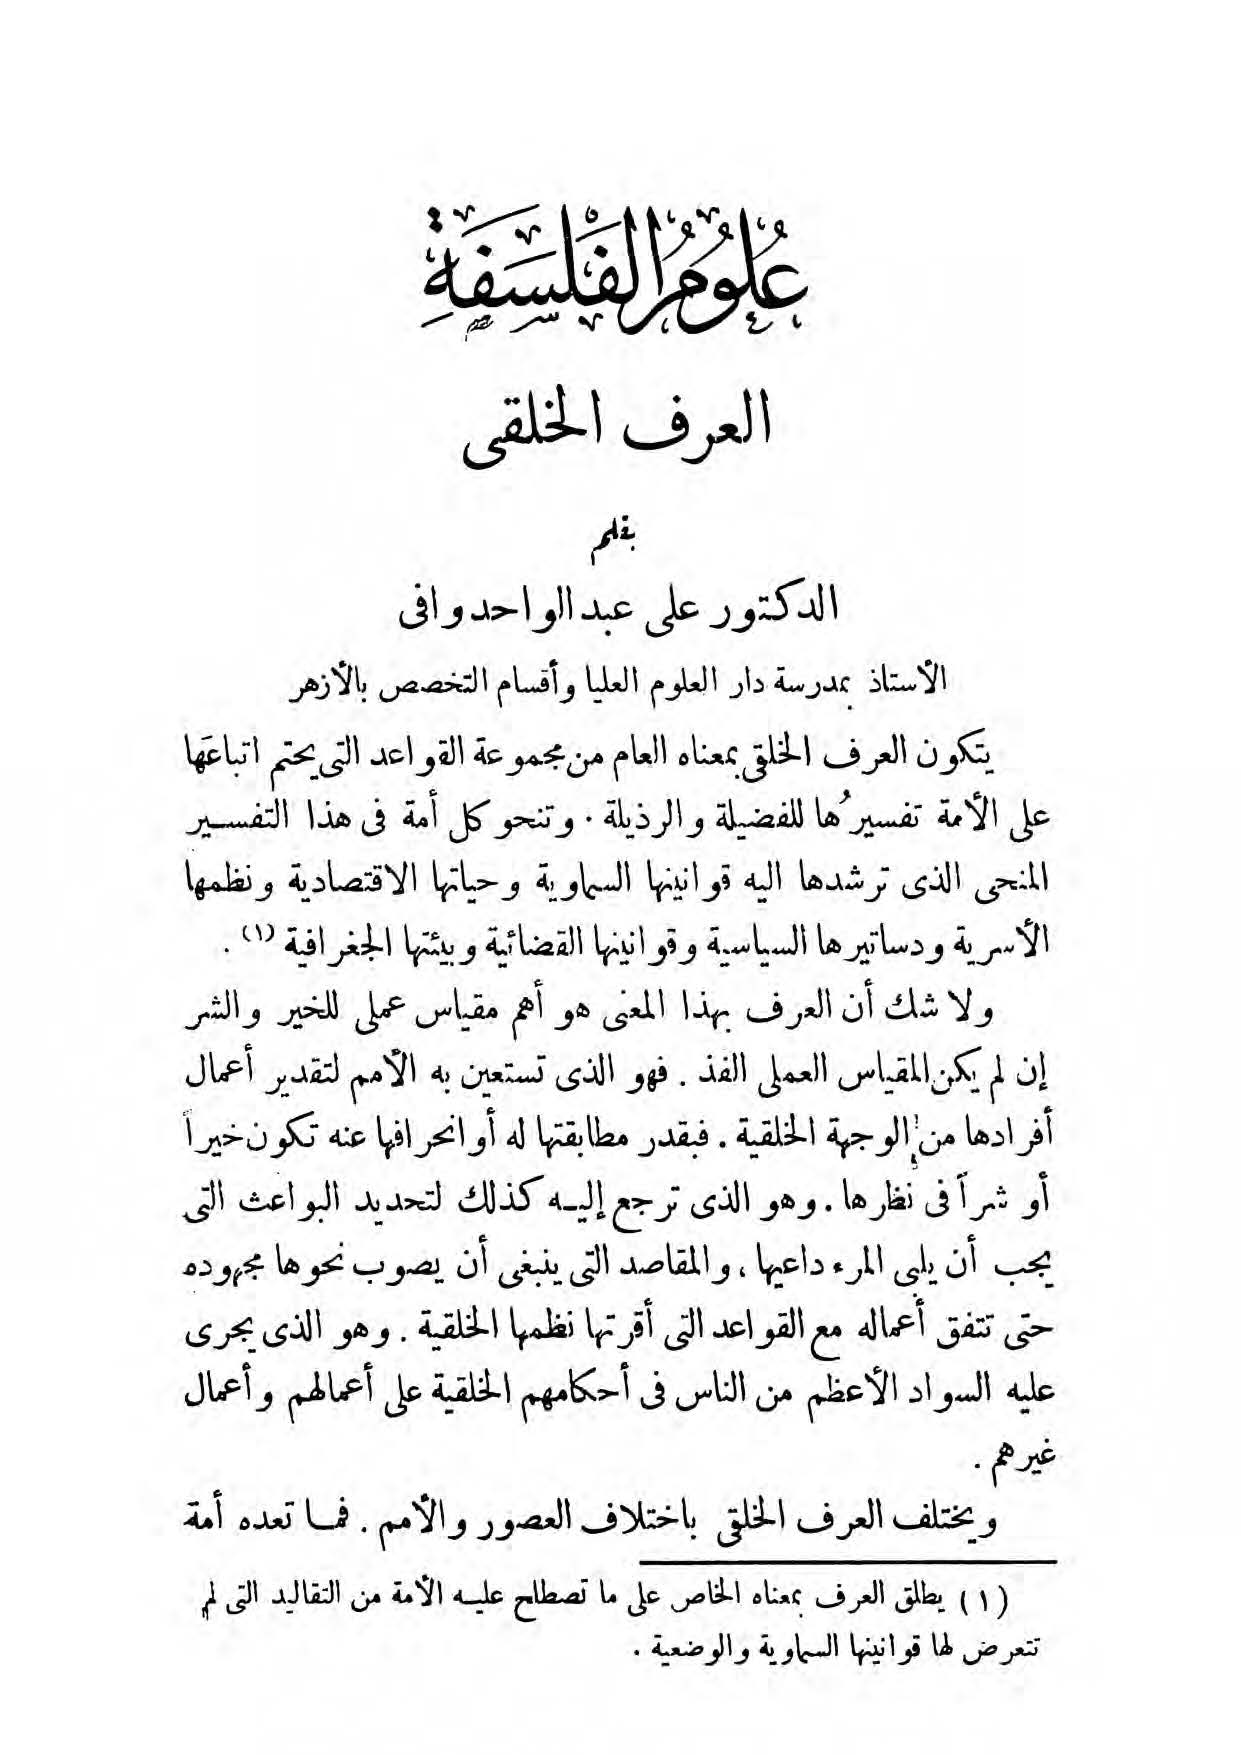 عُلُومُ الفَلْسَفَةِ
العرف الخلقى
بقلم
الدكتور على عبد الواحد وافى
الأستاذ بمدرسة دار العلوم العليا وأقسام التخصص بالأزهر
يتكون العرف الخلقى بمعناه العام من مجموعة القواعد التى يحتم اتباعَها
على الأمة تفسيرُها للفضيلة والرذيلة . وتنحو كل أمة فى هذا التفسير
المنحى الذى ترشدها اليه قوانينها السماوية وحياتها الاقتصادية ونظمها
الأسرية ودساتيرها السياسية وقوانينها القضائية وبيئتها الجغرافية (١) .
ولا شك أن العرف بهذا المعنى هو أهم مقياس عملى للخير والشر
إن لم يكن المقياس العملى الفذ . فهو الذى تستعين به الأمم لتقدير أعمال
أفرادها من الوجهة الخلقية . فبقدر مطابقتها له أو انحرافها عنه تكون خيراً
أو شراً فى نظرها . وهو الذى ترجع إليه كذلك لتحديد البواعث التى
يجب أن يلبى المرء داعيها ، والمقاصد التى ينبغى أن يصوب نحوها مجهوده
حتى تتفق أعماله مع القواعد التى أقرتها نظمها الخلقية . وهو الذى يجرى
عليه السواد الأعظم من الناس فى أحكامهم الخلقية على أعمالهم وأعمال
غيرهم .
ويختلف العرف الخلقى باختلاف العصور والأمم . فما تعده أمة
(١) يطلق العرف بمعناه الخاص على ما تصطلح عليه الأمة من التقاليد التى لم
تتعرض لها قوانينها السماوية والوضعية .